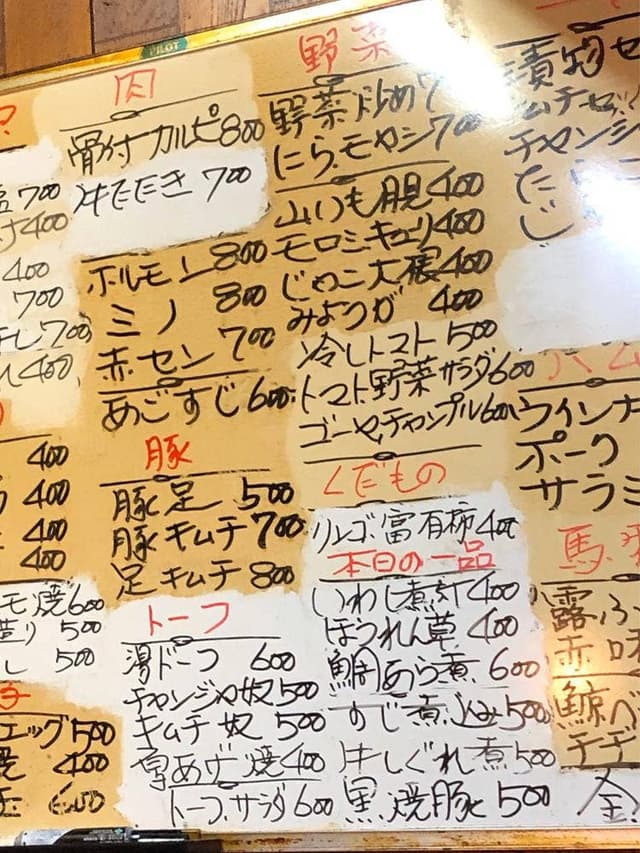 PILOT
肉
骨付カルビ 800
牛たたき 700
ホルモン 800
ミノ 800
赤セン 700
あごすじ 600
豚
豚足 500
豚キムチ 700
足キムチ 800
トーフ
湯ドーフ 600
チャンジャ奴 500
キムチ奴 500
厚あげ焼 400
トーフ.サラダ 600
野菜
野菜炒め 7
にら.モヤシ 700
山いも 400
モロミキュリ 400
じゃこ大根 400
みょうが 400
冷しトマト 500
トマト野菜サラダ 600
ゴーヤチャンプル 600
くだもの
リンゴ.富有柿 400
本日の一品
いわし煮付 400
ほうれん草 400
鯛あら煮 600
すじ煮込み 500
牛しぐれ煮 500
黒焼豚 500
漬物セ
キムチ
チャンジ
た
じ
ハム
ウィンナ
ポーク
サラミ
馬
赤味
鯨ベ
チヂ
金
700
400
400
700
700
400
400
400
400
400
モ焼 600
造り 500
し 500
エッグ 500
焼 400
600